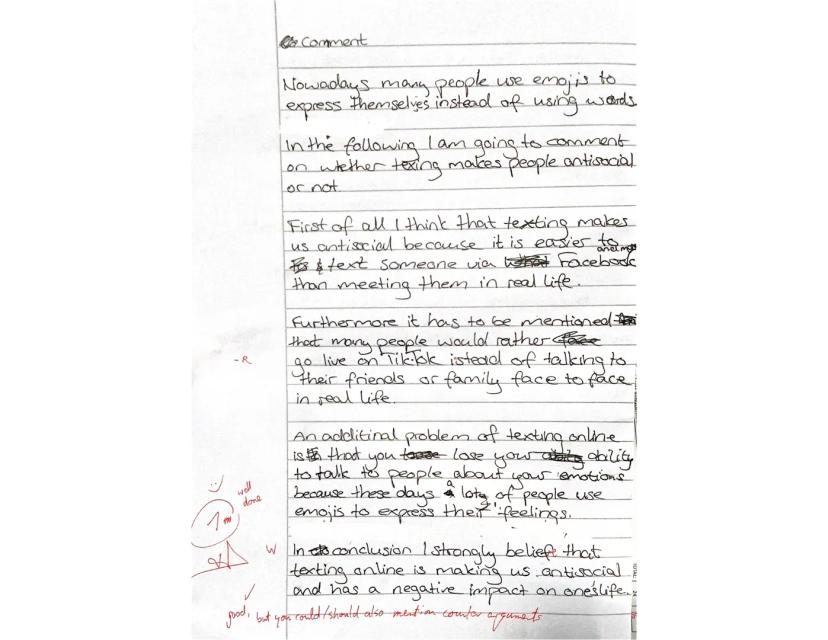 Comment
Nowadays many people use emojis to
express themselves instead of using words.
In the following I am going to comment
on whether texing makes people antisocial
or not.
First of all I think that texting makes
us antisocial because it is easier to
text someone via Facebook
than meeting them in real life.
Furthermore it has to be mentioned
that many people would rather
go live on TikTok istead of talking to
-R
their friends or family face to face
in real life.
An additinal problem of texting online
is that you lose your ability
to talk to people about your emotions
because these days a lot of people use
emojis to express their feelings.
well
done
In conclusion I strongly belief that
W
texting online is making us antisocial
and has a negative impact on one's life.
good, but you could/should also mention counter arguments